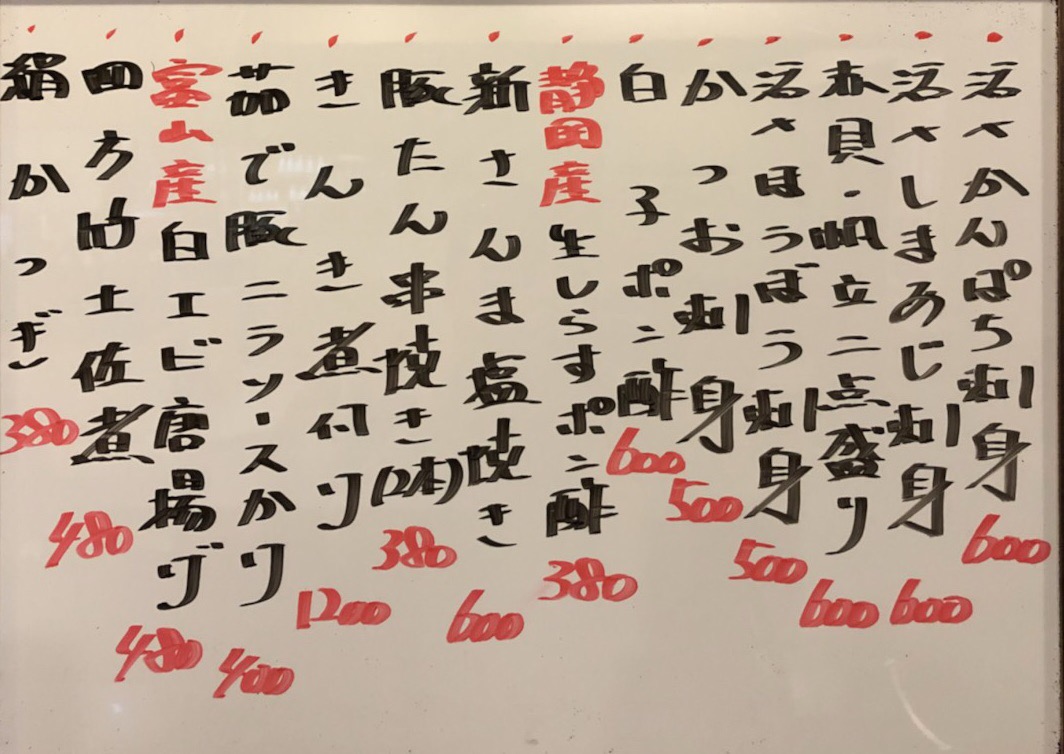 活〆かんぱち刺身 600
活〆しまあじ刺身 600
赤貝・帆立二点盛り 600
活〆ほうぼう刺身 500
かつお刺身 500
白子ポン酢 600
静岡産生しらすポン酢 380
新さんま塩焼き 600
豚たん串焼き(2本) 380
きんき煮付け 1200
茹で豚ニラソースかけ 400
富山産白エビ唐揚げ 480
四方竹土佐煮 480
絹かつぎ 380